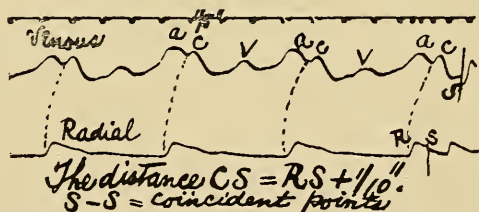 1/5"
Venous a c V a c V a c
S
Radial R S
The distance CS = RS + 1/10".
S-S = coincident points